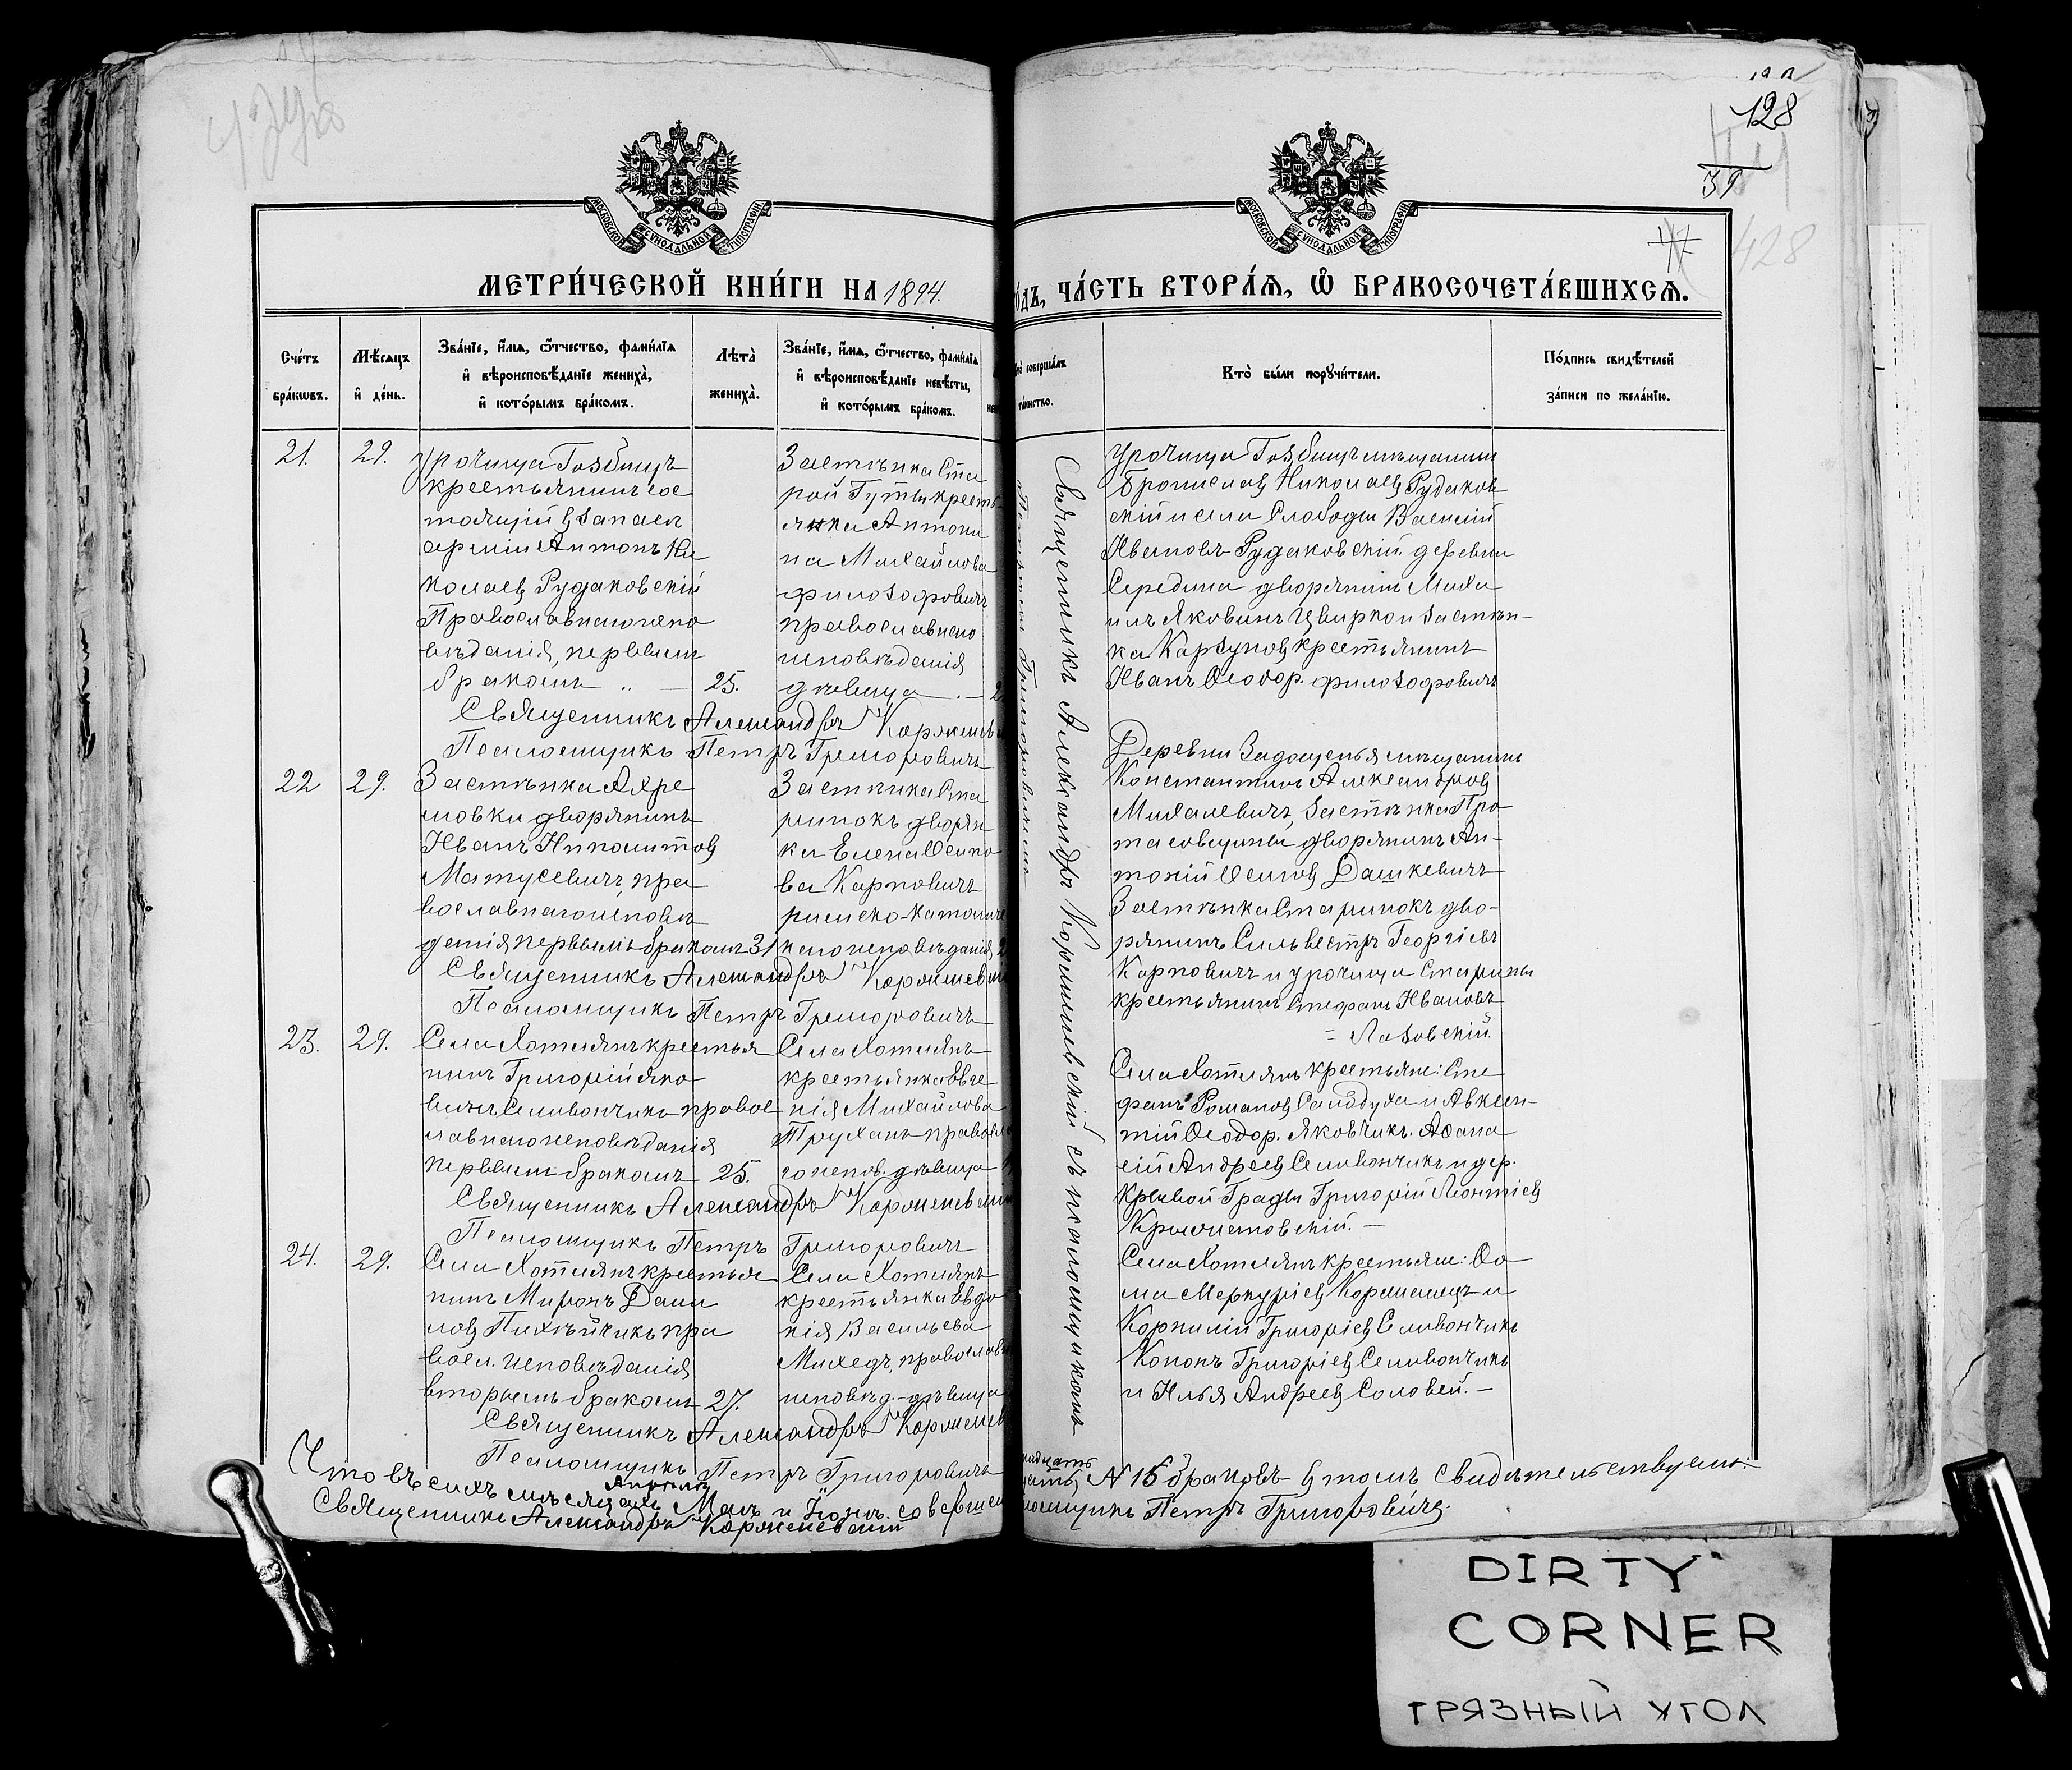 128
39
428
МОСКОВСКОЙ СѴНОДАЛЬНОЙ ТИПОГРАФІИ
МОСКОВСКОЙ СѴНОДАЛЬНОЙ ТИПОГРАФІИ
МЕТРИ́ЧЕСКОЙ КНИ́ГИ НА 1894.
о́дъ, ЧА́СТЬ ВТОРА́Ѧ, Ѽ БРАКОСОЧЕТА́ВШИХСѦ.
Сче́тъ бра́кѡвъ.
Мѣ́сѧцъ и҆ де́нь.
Зва́нїе, и҆́мѧ, ѻ҆́тчество, фами́лїѧ
и҆ вѣроисповѣ́данїе жениха̀,
и҆ кото́рымъ бра́комъ.
Лѣта̀ жениха̀.
Зва́нїе, и҆́мѧ, ѻ҆́тчество, фами́лїѧ
и҆ вѣроисповѣ́данїе невѣ́сты,
и҆ кото́рымъ бра́комъ.
то̀ соверша́лъ та́инство.
Кто̀ бы́ли порꙋчи́тели.
По́дпись свидѣ́телей за́писи по жела́нїю.
21. 29.
Урочища Гозбищъ
крестьянинъ сос
тоящій въ запасѣ
арміи Антонъ Ни
колаевъ Рудаковскій
Православнаго испо
вѣданія, первымъ
бракомъ 25.
Застѣнка Ста
рой Гуты кресть
янка Антони
на Михайлова
Философовичъ
православнаго
исповѣданія
дѣвица 2
Урочища Гозбищъ мѣщанинъ
Брониславъ Николаевъ Рудаков
скій и села Слободы Василій
Ивановъ Рудаковскій деревни
Середина дворянинъ Миха
илъ Яковинъ Цвирко и застѣн-
ка Карзуновъ крестьянинъ
Иванъ Ѳеодор. Философовичъ
Священникъ Александръ Корженевс
Псаломщикъ Петръ Григоровичъ
22 29.
Застѣнка Ахре
мовки дворянинъ
Иванъ Ипполитовъ
Матусевичъ, пра
вославнаго исповѣ
данія первымъ бракомъ 31
Застѣнка Ста
ринокъ дворян
ка Елена Осипо
ва Карповичъ
римско-католиче
скаго исповѣданія 2
Деревни Задощенья мѣщанинъ
Константинъ Александровъ
Михалевичъ, застѣнка Про
тасовщины дворянинъ Ан-
тоній Осиповъ Дашкевичъ
Застѣнка Старинокъ дво-
рянинъ Сильвестръ Георгіевъ
Карповичъ и урочища Старины
крестьянинъ Стефанъ Ивановъ
= Лазовскій.
Священникъ Александръ Корженевскі
Псаломщикъ Петръ Григоровичъ
23. 29.
Села Хотлянъ крестья
нинъ Григорій Яко
винъ Селивончикъ правос
лавнаго исповѣданія
первымъ бракомъ 25.
Села Хотлянъ
крестьянка Евге
нія Михайлова
Труханъ правосла
го испов. дѣвица
Села Хотлянъ крестьяне: Сте
фанъ Романовъ Самодуха и Авксен-
тій Ѳеодор. Яковчикъ. Аѳана
сій Андреевъ Селивончикъ и дер.
Кривой Грады Григорій Леонтіевъ
Священникъ Александръ Корженевски
Псаломщикъ Петръ Григоровичъ
24. 29.
Села Хотлянъ крестья
нинъ Миронъ Дани
ловъ Пилѣйчикъ пра
восл. исповѣданія
вторымъ бракомъ 27.
Села Хотлянъ
крестьянка Евдо
кія Васильева
Михедъ, православ
исповѣд. дѣвица
Села Хотлянъ крестьяне: Ѳо
ма Меркуріевъ и
Корнилій Григоріевъ Селивончикъ
Кононъ Григоріевъ Селивончикъ
и Илья Андреевъ Соловей. –
Священникъ Александръ Корженев
Псаломщикъ Петръ Григоровичъ
Священникъ Александръ Корженевскій съ псаломщикомъ
Петромъ Григоровичемъ
Что въ сихъ мѣсяцахъ Апрѣлѣ Маѣ и Іюнѣ совершен
№ 15 браковъ въ томъ свидѣтельствуемъ:
Священникъ Александръ Корженевскій
ломщикъ Петръ Григоровичъ.
DIRTY
CORNER
ГРЯЗНЫЙ УГОЛ